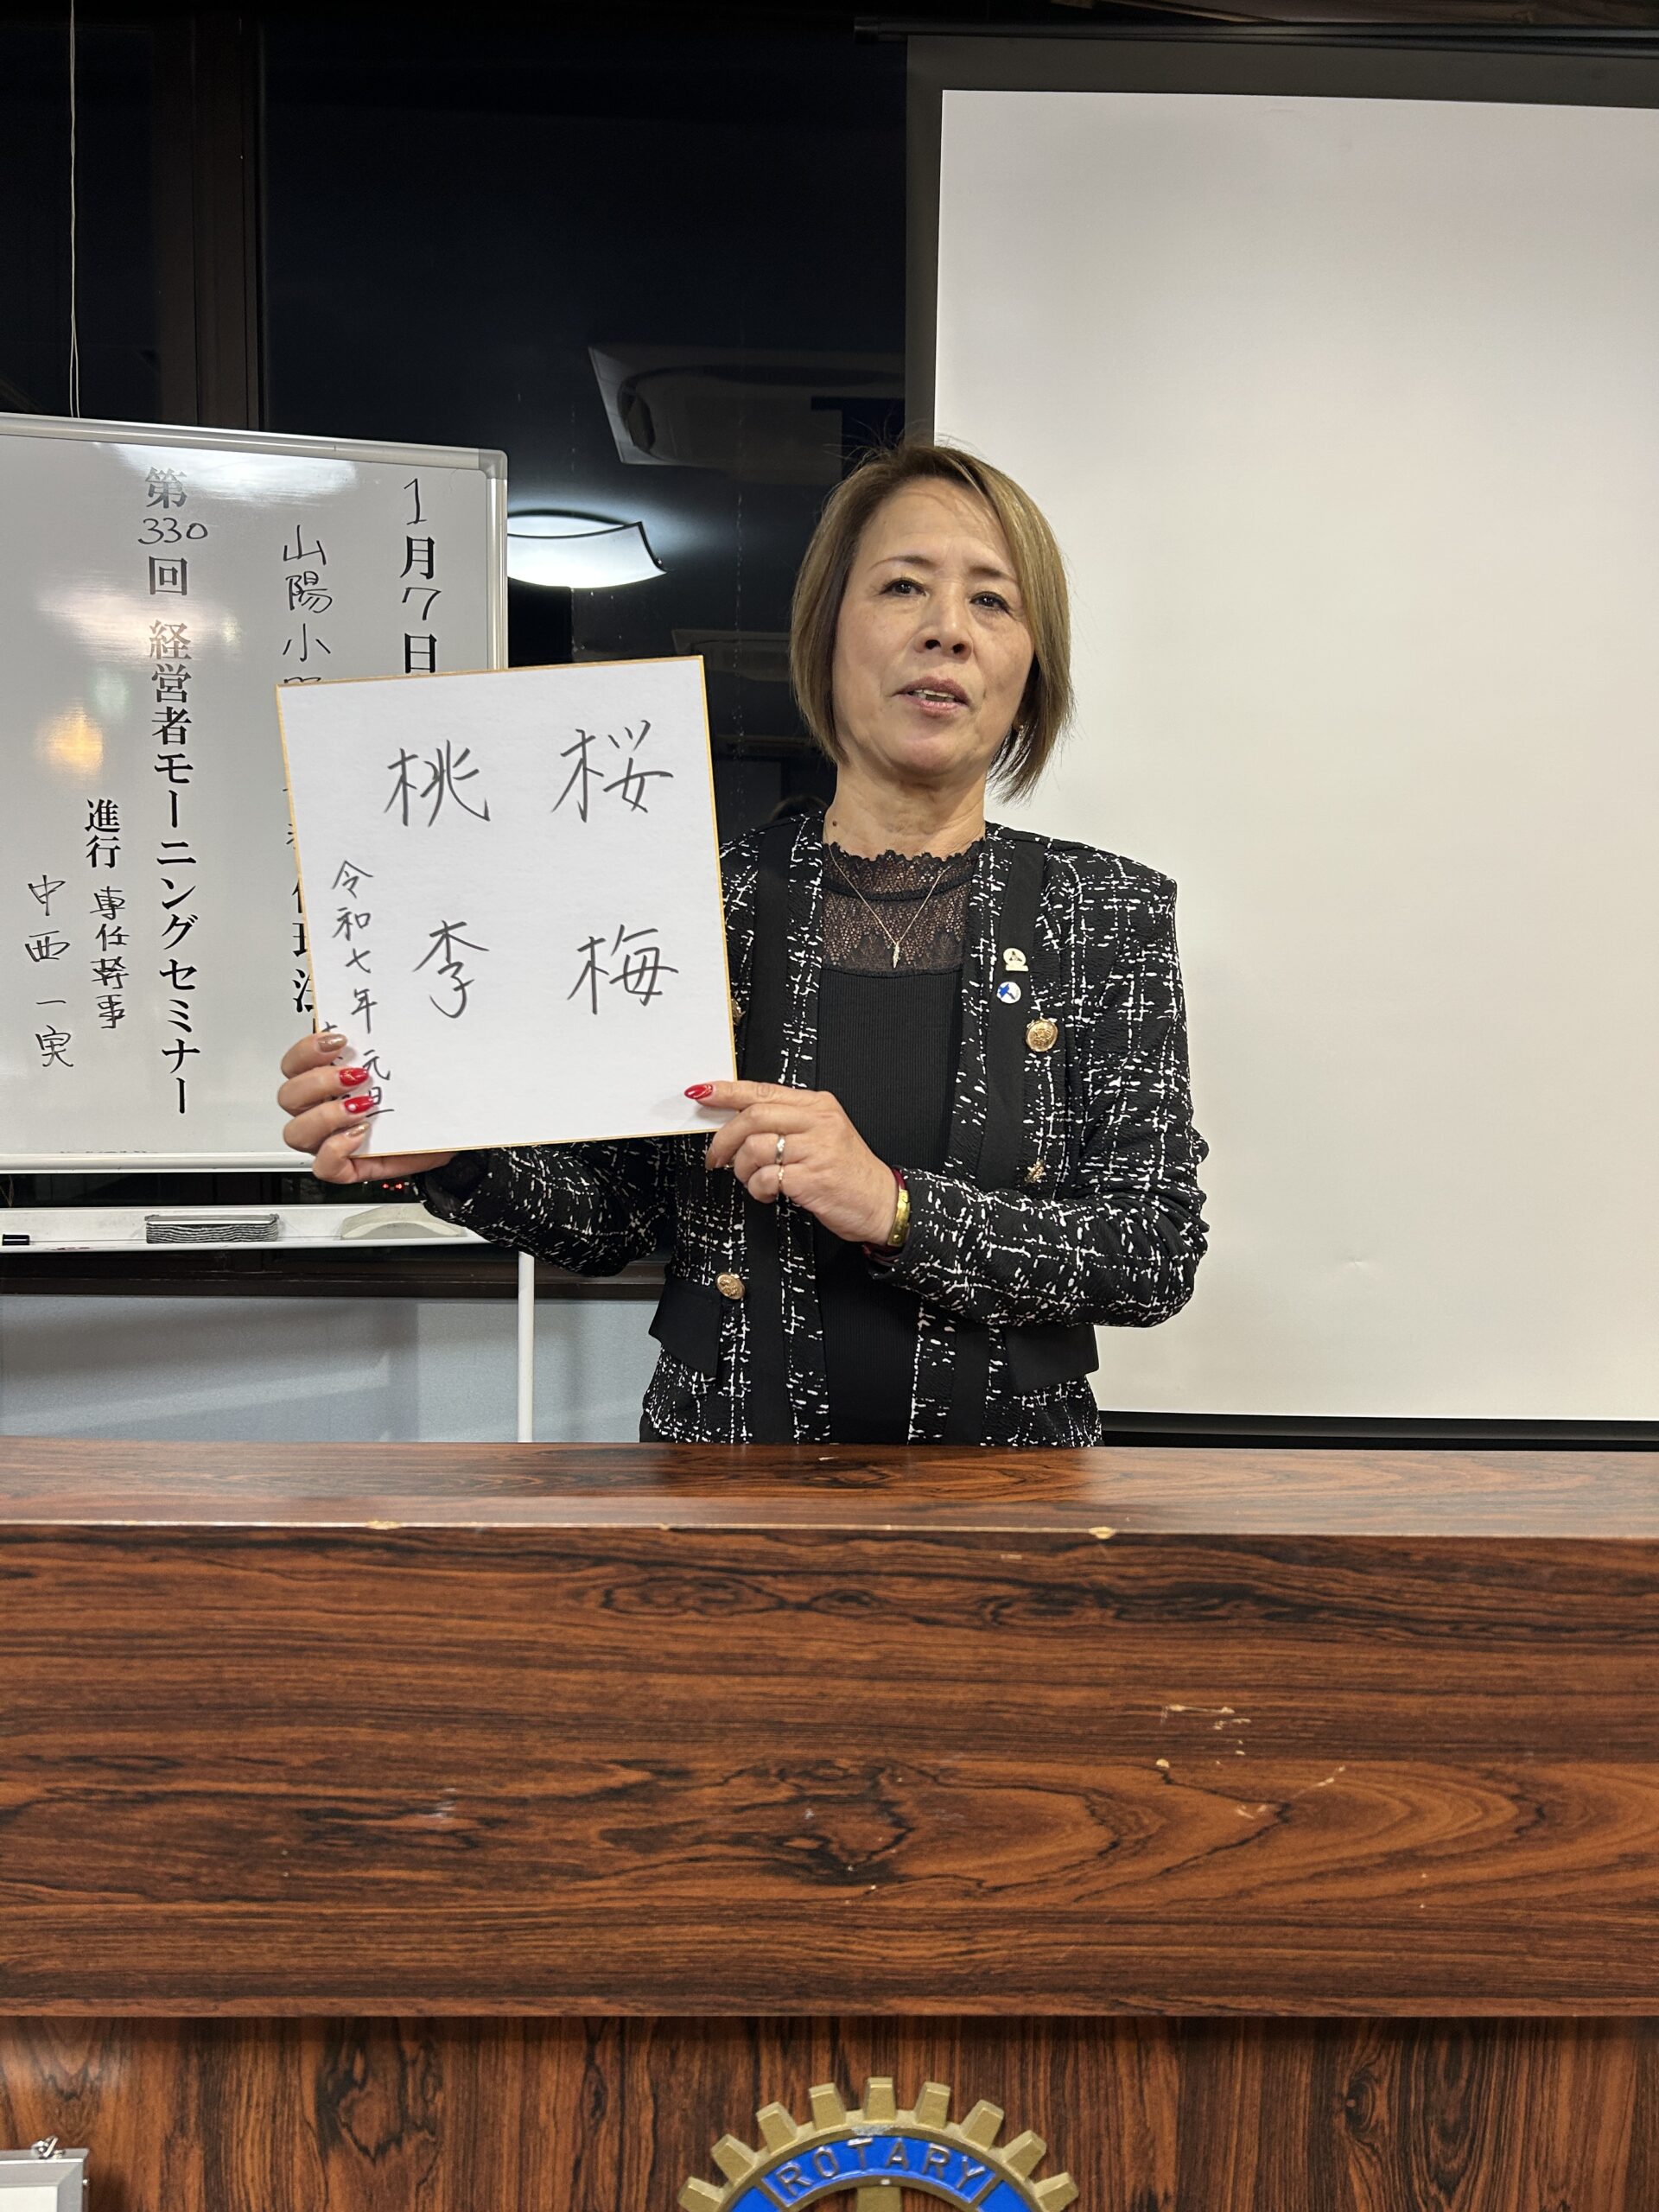 1月7日
山陽小
第330回 経営者モーニングセミナー
進行 専任幹事
中西一実
桜梅
桃李
令和七年元旦
ROTARY